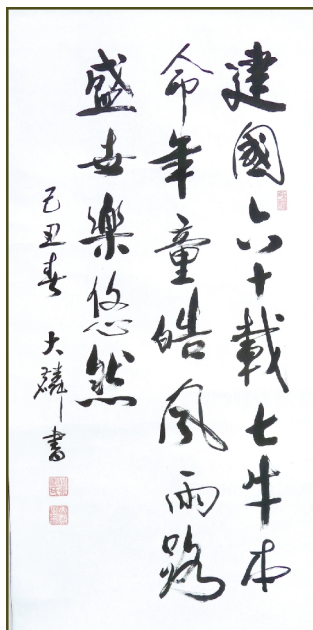 建國六十載七牛本
命年童皓风雨路
盛世樂悠然
己丑春 大麟書